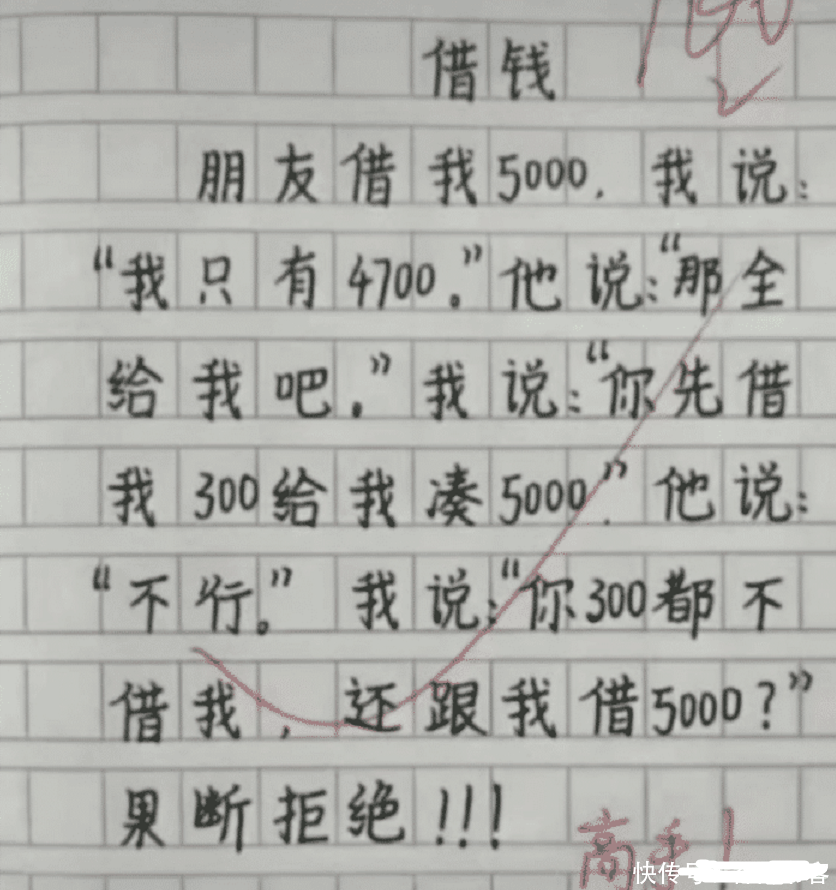 100
借钱
朋友借我5000.我说:
“我只有4700。”他说:“那全
给我吧。”我说:“你先借
我300给我凑5000.”他说:
“不行。”我说:“你300都不
借我,还跟我借5000?”
果断拒绝!!!
高手!
快传号
客